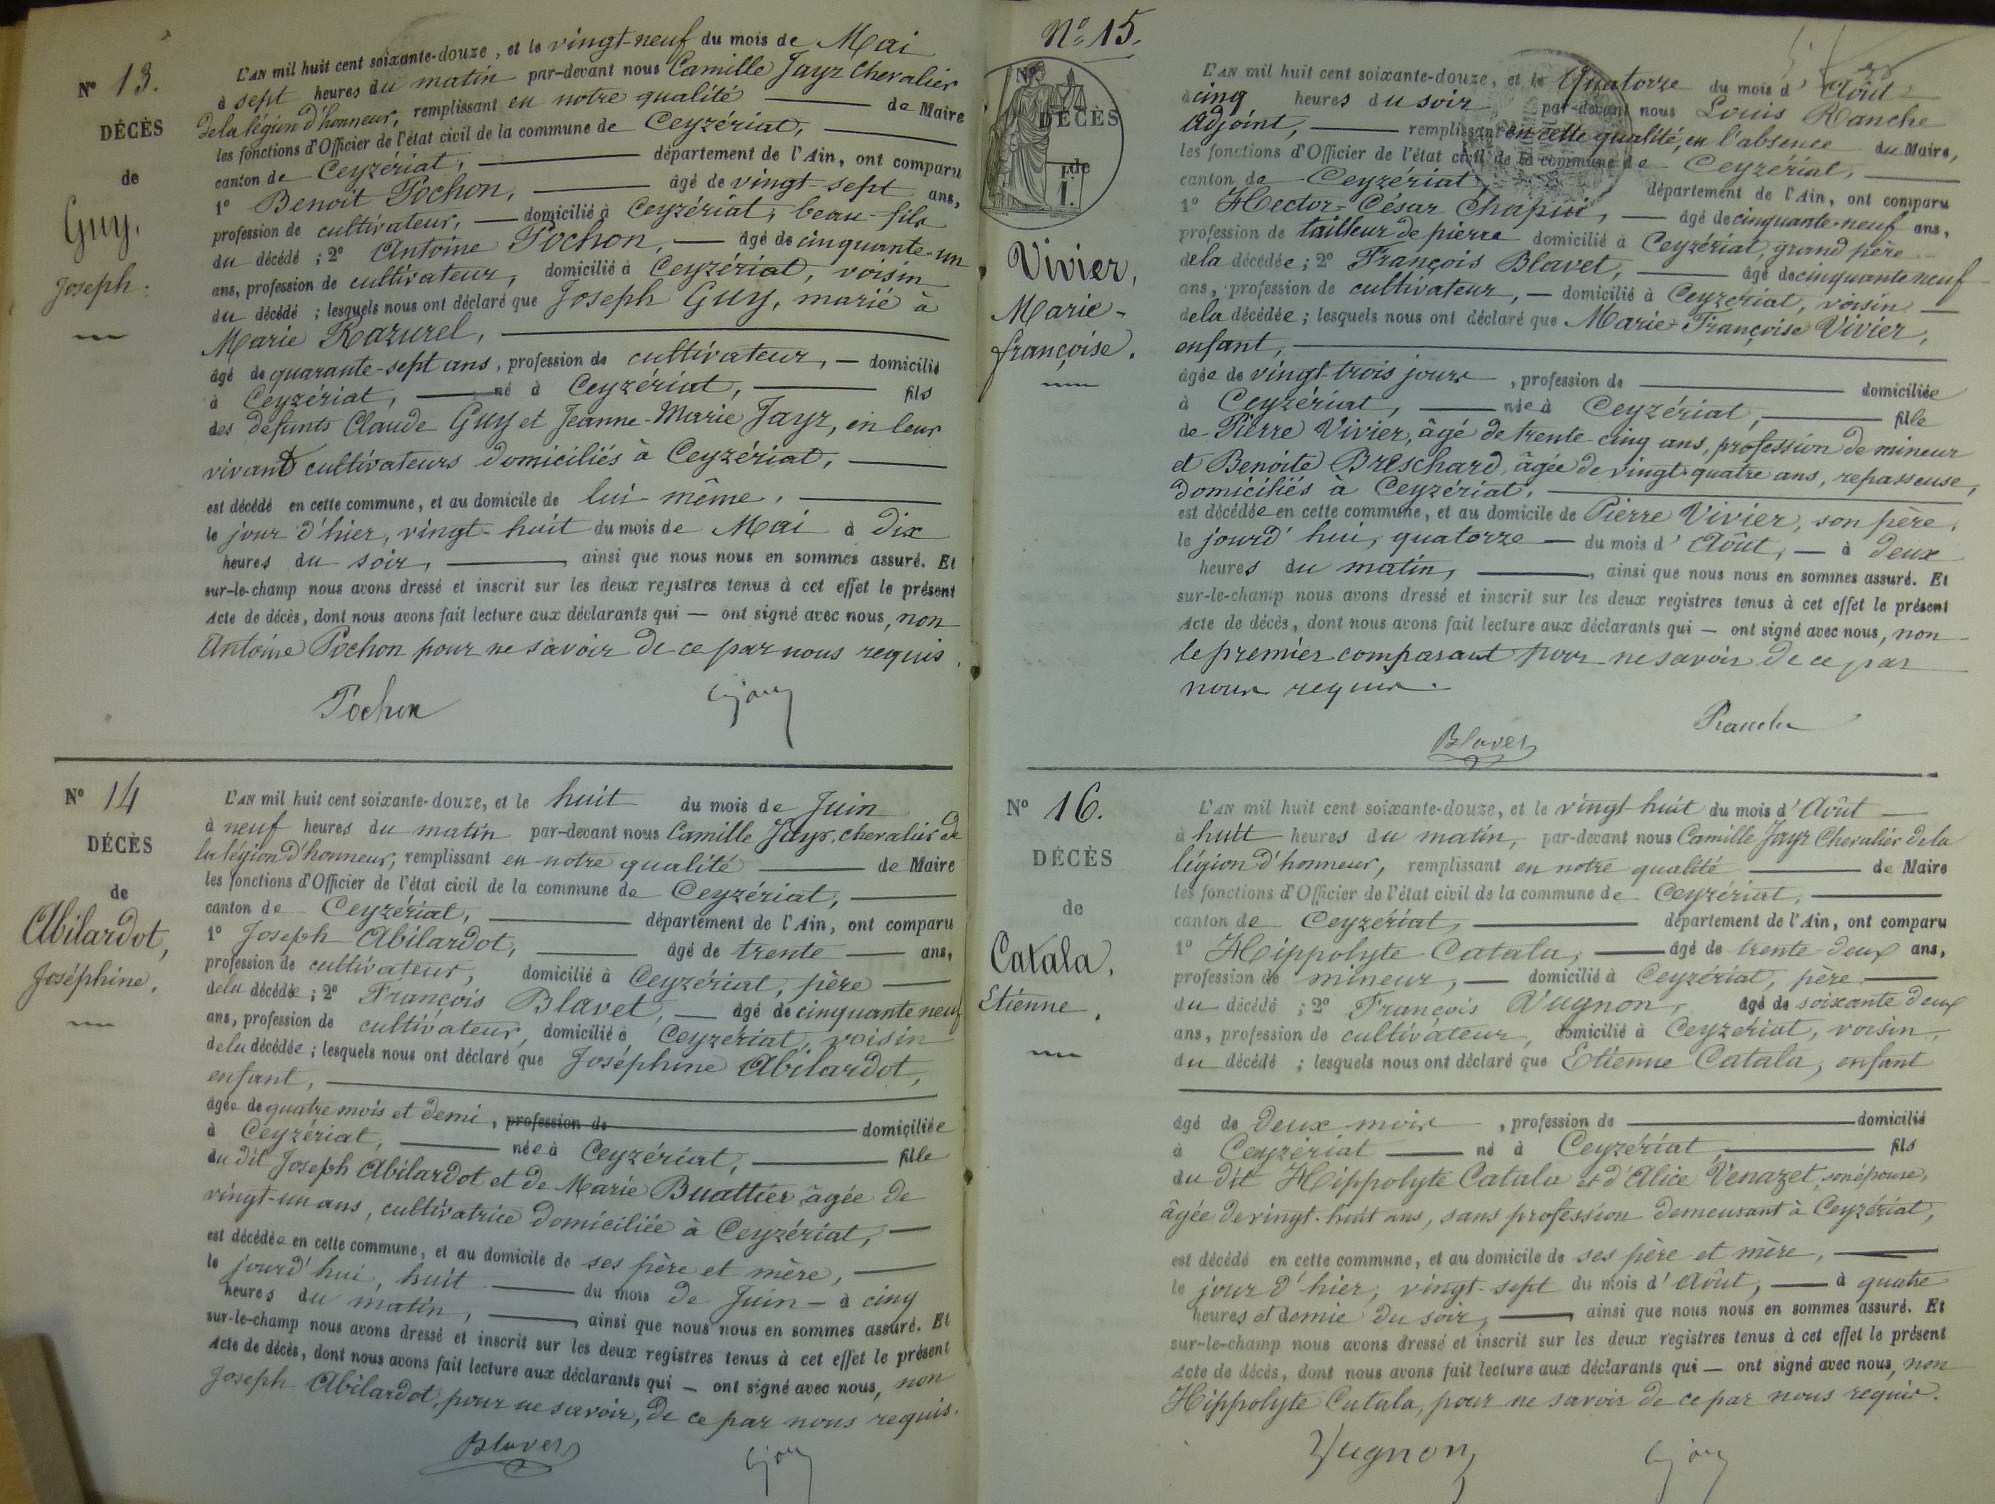 Nº 13.
DÉCÈS
de
Guy,
Joseph.
L'AN mil huit cent soixante-douze, et le vingt-neuf du mois de Mai
à sept heures du matin par-devant nous Camille Jayr Chevalier
de la légion d'honneur, remplissant en notre qualité de Maire
les fonctions d'Officier de l'état civil de la commune de Ceyzériat,
canton de Ceyzériat, département de l'Ain, ont comparu
1º Benoit Pochon, âgé de vingt-sept ans,
profession de cultivateur, domicilié à Ceyzériat, beau-fils
du décédé ; 2º Antoine Pochon, âgé de cinquante-un
ans, profession de cultivateur, domicilié à Ceyzériat, voisin
du décédé ; lesquels nous ont déclaré que Joseph Guy, marié à
Marie Razurel,
âgé de quarante-sept ans, profession de cultivateur, domicilié
à Ceyzériat, né à Ceyzériat, fils
des défunts Claude Guy et Jeanne-Marie Jayr, en leur
vivant cultivateurs domiciliés à Ceyzériat,
est décédé en cette commune, et au domicile de lui-même,
le jour d'hier, vingt-huit du mois de Mai à dix
heures du soir, ainsi que nous nous en sommes assuré. Et
sur-le-champ nous avons dressé et inscrit sur les deux registres tenus à cet effet le présent
Acte de décès, dont nous avons fait lecture aux déclarants qui — ont signé avec nous, non
Antoine Pochon pour ne savoir de ce par nous requis.
Pochon
Nº 14
DÉCÈS
de
Abilardot,
Joséphine.
L'AN mil huit cent soixante-douze, et le huit du mois de Juin
à neuf heures du matin par-devant nous Camille Jayr, chevalier de
la légion d'honneur, remplissant en notre qualité de Maire
les fonctions d'Officier de l'état civil de la commune de Ceyzériat,
canton de Ceyzériat, département de l'Ain, ont comparu
1º Joseph Abilardot, âgé de trente ans,
profession de cultivateur, domicilié à Ceyzériat, père
de la décédée ; 2º François Blavet, âgé de cinquante neuf
ans, profession de cultivateur, domicilié à Ceyzériat, voisin
de la décédée ; lesquels nous ont déclaré que Joséphine Abilardot,
enfant,
âgée de quatre mois et demi, profession de domiciliée
à Ceyzériat, née à Ceyzériat, fille
du dit Joseph Abilardot et de Marie Buattier âgée de
vingt-un ans, cultivatrice domiciliée à Ceyzériat,
est décédée en cette commune, et au domicile de ses père et mère,
le jourd'hui, huit du mois de Juin — à cinq
heures du matin, ainsi que nous nous en sommes assuré. Et
sur-le-champ nous avons dressé et inscrit sur les deux registres tenus à cet effet le présent
Acte de décès, dont nous avons fait lecture aux déclarants qui — ont signé avec nous, non
Joseph Abilardot, pour ne savoir, de ce par nous requis.
Blavet
Nº 15.
Nº
DÉCÈS
de
Vivier,
Marie-
françoise.
L'AN mil huit cent soixante-douze, et le Quatorze du mois d'Août
à cinq heures du soir par-devant nous Louis Ranche
Adjoint, remplissant en cette qualité, en l'absence du Maire,
les fonctions d'Officier de l'état civil de la commune de Ceyzériat,
canton de Ceyzériat, département de l'Ain, ont comparu
1º Hector-César Chapui, âgé de cinquante-neuf ans,
profession de tailleur de pierre domicilié à Ceyzériat, grand père
de la décédée ; 2º François Blavet, âgé de cinquante neuf
ans, profession de cultivateur, — domicilié à Ceyzériat, voisin
de la décédée ; lesquels nous ont déclaré que Marie-Françoise Vivier,
enfant,
âgée de vingt-trois jours, profession de domiciliée
à Ceyzériat, née à Ceyzériat, fille
de Pierre Vivier, âgé de trente cinq ans, profession de mineur
et Benoite Breschard, âgée de vingt-quatre ans, repasseuse,
domiciliés à Ceyzériat,
est décédée en cette commune, et au domicile de Pierre Vivier, son père,
le jourd'hui, quatorze — du mois d'Août, — à deux
heures du matin, ainsi que nous nous en sommes assuré. Et
sur-le-champ nous avons dressé et inscrit sur les deux registres tenus à cet effet le présent
Acte de décès, dont nous avons fait lecture aux déclarants qui — ont signé avec nous, non
le premier comparant pour ne savoir de ce par
nous requis.
Ranche
Blavet
Nº 16.
DÉCÈS
de
Catala,
Etiénne.
L'AN mil huit cent soixante-douze, et le vingt-huit du mois d'Août
à huit heures du matin, par-devant nous Camille Jayr Chevalier de la
légion d'honneur, remplissant en notre qualité de Maire
les fonctions d'Officier de l'état civil de la commune de Ceyzériat,
canton de Ceyzériat, département de l'Ain, ont comparu
1º Hippolyte Catala, âgé de trente-deux ans,
profession de mineur, — domicilié à Ceyzériat, père
du décédé ; 2º François Vugnon, âgé de soixante deux
ans, profession de cultivateur, domicilié à Ceyzériat, voisin,
du décédé ; lesquels nous ont déclaré que Etienne Catala, enfant
âgé de deux mois, profession de domicilié
à Ceyzériat né à Ceyzériat, fils
du dit Hippolyte Catala et d'Alice Venazet, son épouse,
âgée de vingt-huit ans, sans profession demeurant à Ceyzériat,
est décédé en cette commune, et au domicile de ses père et mère,
le jour d'hier, vingt-sept du mois d'Août, — à quatre
heures et demie du soir, ainsi que nous nous en sommes assuré. Et
sur-le-champ nous avons dressé et inscrit sur les deux registres tenus à cet effet le présent
Acte de décès, dont nous avons fait lecture aux déclarants qui — ont signé avec nous, non
Hippolyte Catala, pour ne savoir de ce par nous requis.
Vugnon